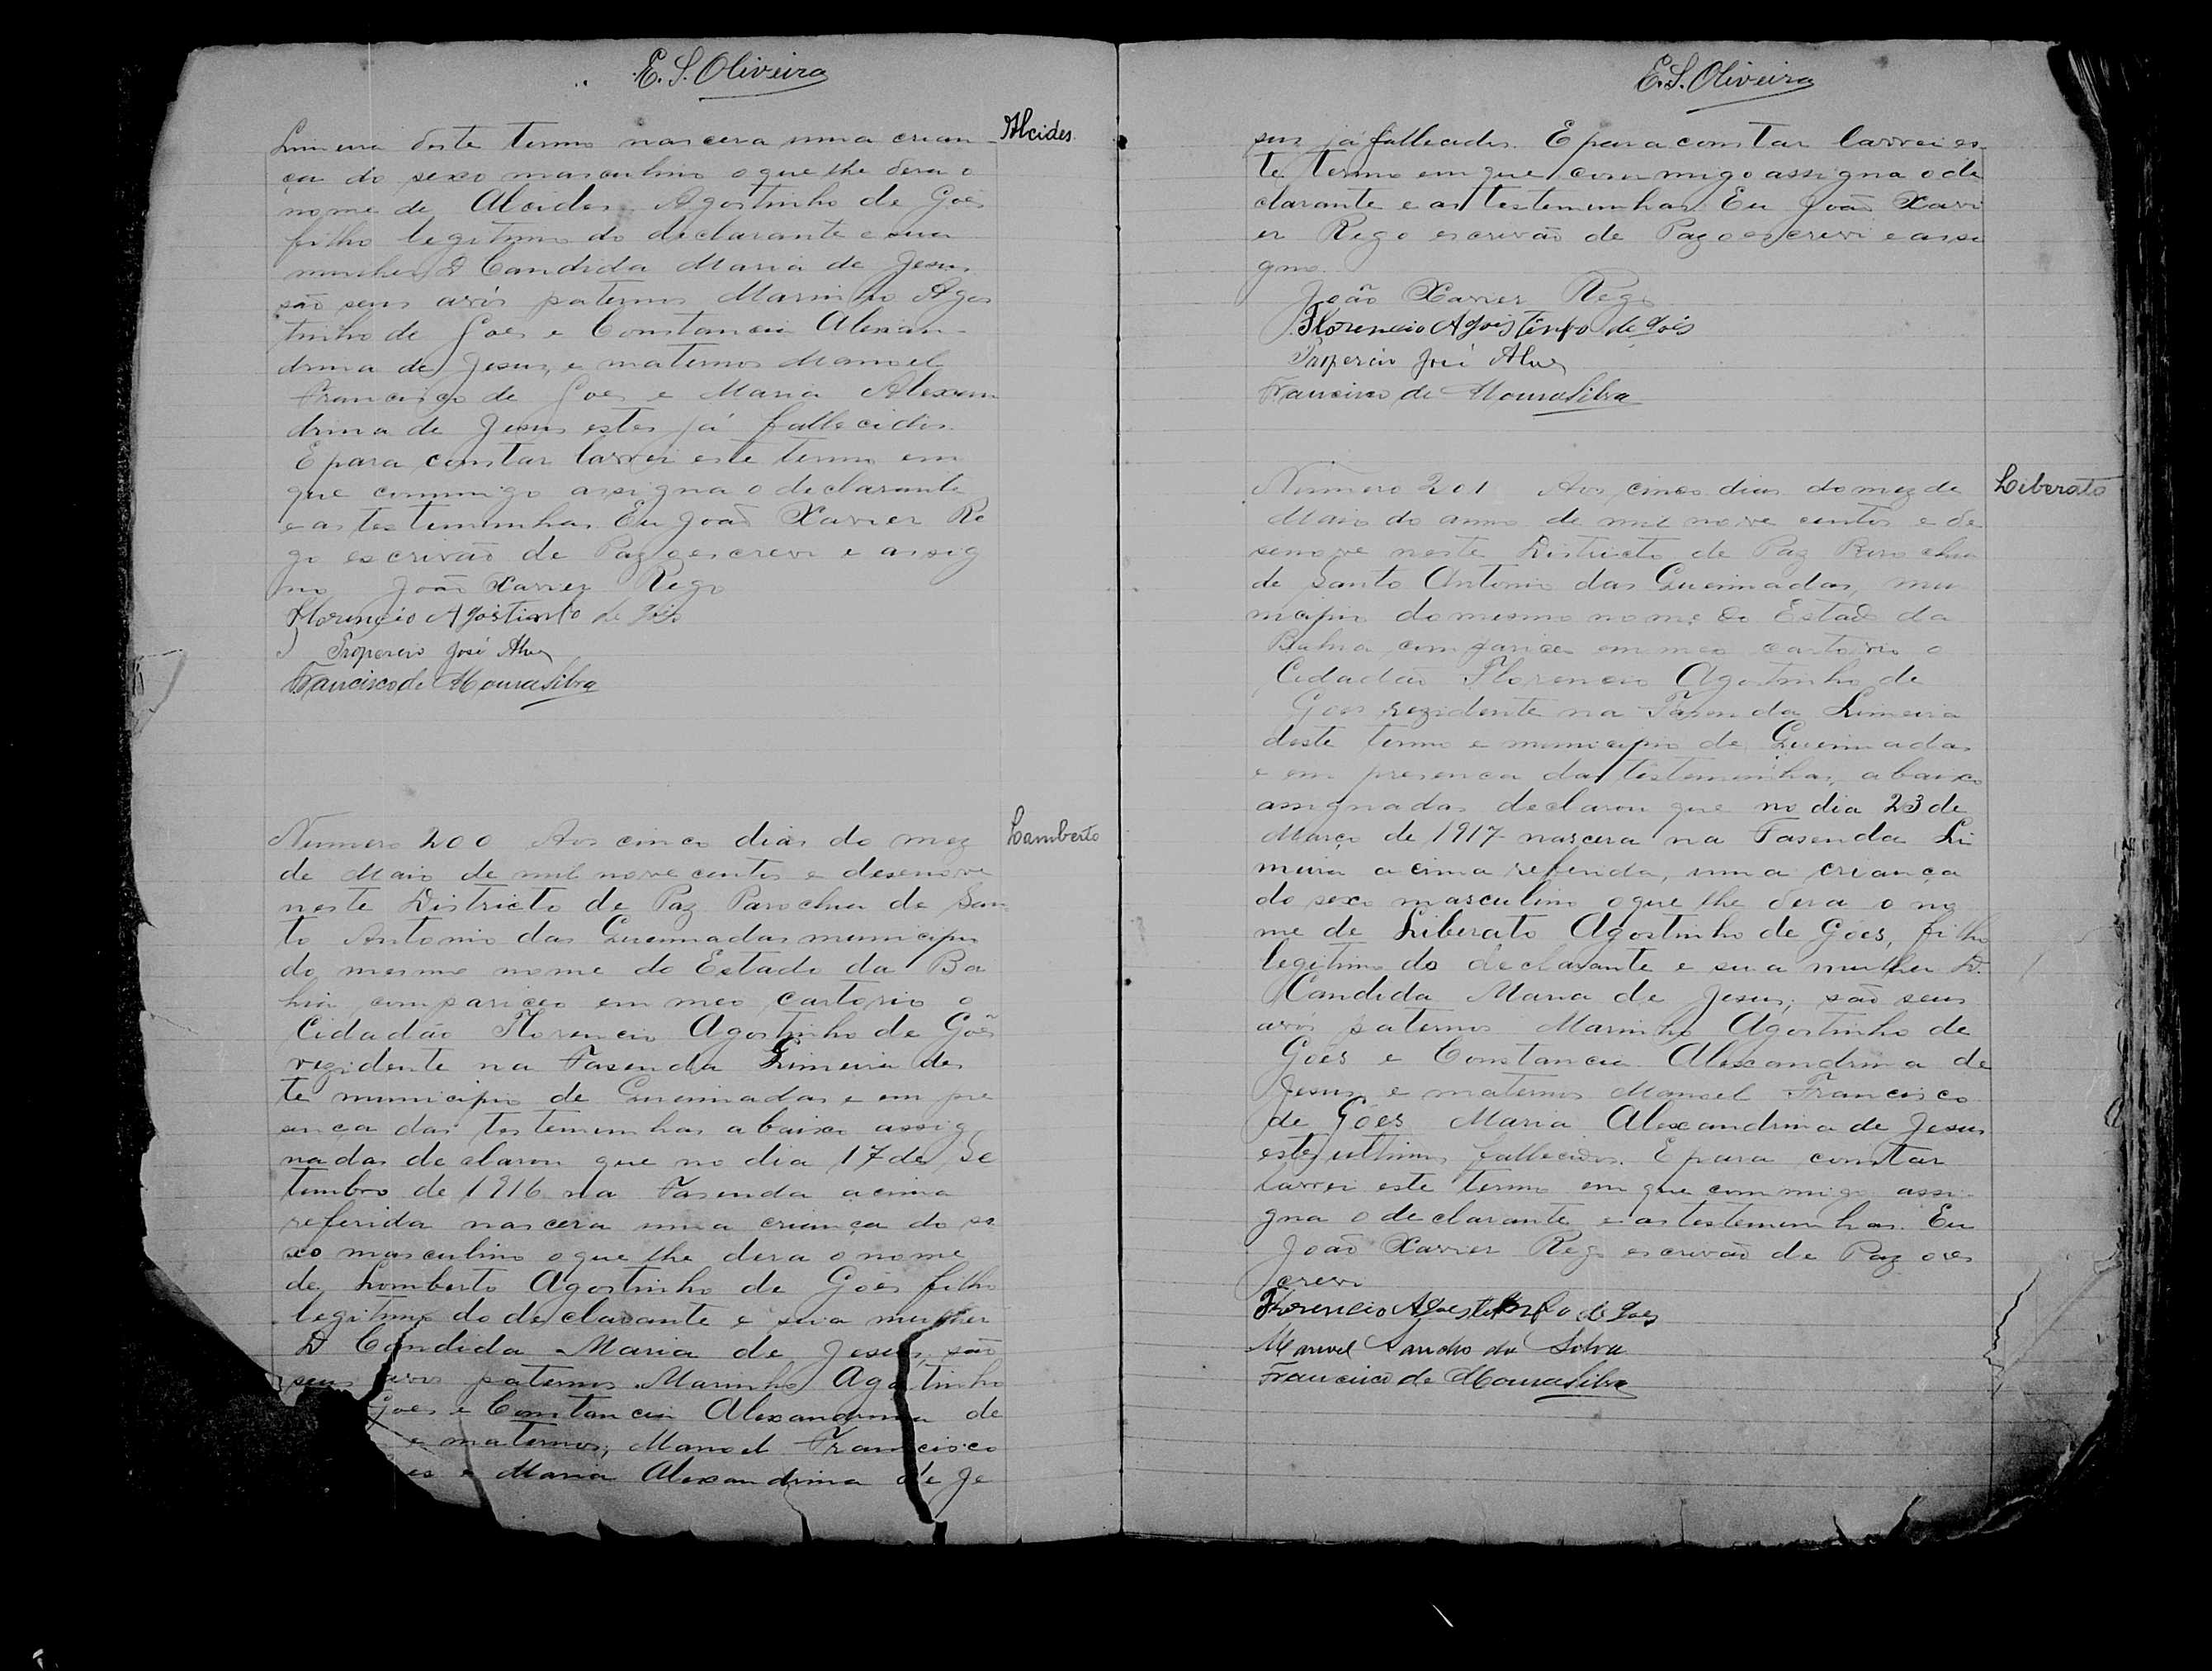 E. S. Oliveira
Alcides
Limeira deste termo nascera uma crian-
ça do sexo masculino o que lhe dera o
nome de Alcides Agostinho de Goes
filho legitimo do declarante e sua
mulher D Candida Maria de Jesus
são seus avós paternos Marinho Agos
tinho de Goes e Constancia Alexan-
drina de Jesus, e maternos Manoel
Francisco de Goes e Maria Alexan
drina de Jesus estes já fallecidos.
E para constar lavrei este termo em
que commigo assigna o declarante
e as testemunhas. Eu João Xavier Re
go escrivão de Paz o escrevi e assig
no João Xavier Rego
Florencio Agostinho de Góis
Properio José Alves
Francisco de Moura Silva
Lamberto
Numero 200 Aos cinco dias do mez
de Maio de mil nove centos e desenove
neste Districto de Paz Parochia de San
to Antonio das Queimadas municipio
do mesmo nome do Estado da Ba
hia compariceo em meo cartorio o
Cidadão Florencio Agostinho de Goes
rezidente na Fasenda Limeira des
te municipio de Queimadas e em pre
sença das testemunhas abaixo assig
nadas declarou que no dia 17 de Se
tembro de 1916 na Fasenda acima
referida nascera uma criança do se
xo masculino o que lhe dera o nome
de Lomberto Agostinho de Goes filho
legitimo do declarante e sua mulher
D Candida Maria de Jesus, são
seus avos paternos Marinho Agostinho
Goes e Constancia Alexandrina de
e maternos, Manoel Francisco
es e Maria Alexandrina de Je
E. S. Oliveira
sus já fallecidos. E para constar lavrei es
te termo em que commigo assigna o de
clarante e as testemunhas. Eu João Xavi
er Rego escrivão de Paz o escrevi e assi
gno.
João Xavier Rego
Florencio Agoistinho de Góis
Properio José Alves
Francisco de Moura Silva
Liberato
Numero 201 Aos cinco dias do mez de
Maio do anno de mil nove centos e de
senove neste Districto de Paz Parochia
de Santo Antonio das Queimadas, mu
nicipio do mesmo nome do Estado da
Bahia compariceo em meo cartorio o
Cidadão Florencio Agostinho de
Goes rezidente na Fasenda Limeira
deste termo e municipio de Queimadas
e em presenca das testemunhas, abaixo
assignadas declarou que no dia 23 de
Março de 1917 nascera na Fasenda Li
meira acima referida, uma criança
do sexo masculino o que lhe dera o no
me de Liberato Agostinho de Góes, filho
legitimo do declarante e sua mulher D.
Candida Maria de Jesus; são seus
avós paternos Marinho Agostinho de
Goes e Constancia Alexandrina de
Jesus e maternos Manoel Francisco
de Góes Maria Alexandrina de Jesus
estes ultimos fallecidos. E para constar
lavrei este termo em que commigo assi-
gna o declarante e as testemunhas. Eu
João Xavier Rego escrivão de Paz o es
crevi
Florencio Agoestinho de Goes
Manoel Sancho da Silva
Francisco de Moura Silva